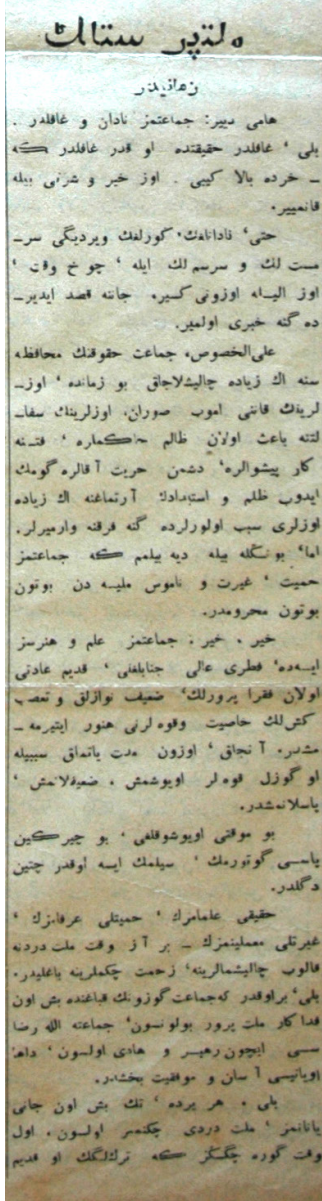 ملتپر ستلك
زمانیدر
هامی دییر: جماعتمز نادان و غافلدر .
بلی ٬ غافلدر حقیقتده او قدر غافلدر که
ـ خرده بالا کیبی . اوز خیر و شرنی بیله
قانمییر.
حتی ٬ نادانلغك٬ کورلغك ویردیگی سر-
مست لك و سرسم لك ایله ٬ چوخ وقت ٬
اوز الیله اوزونی کسیر. جاننه قصد ایدیر-
ده گنه خبری اولمیر.
علی‌الخصوص، جماعت حقوقنك محافظه
سنه اك زیاده چالیشلاجاق بو زمانده ٬ اوز-
لرینك قاننی اموب صوران، اوزلرینك سفا-
لتنه باعث اولان ظالم حاکملره ٬ فتنه
کار پیشوالره٬ دشمن حریت آقالره گومك
ایدوب ظلم و استبدادك آرتماغنه اك زیاده
اوزلری سبب اولورلرده گنه فرقنه وارمیرلر.
اما٬ بونکله بیله دیه بیلمم که جماعتمز
حمیت ٬ غیرت و ناموس ملیه دن بوتون
بوتون محرومدر.
خیر . خیر . جماعتمز علم و هنرسز
ایسه‌ده٬ فطری عالی جنابلغی ٬ قدیم عادتی
اولان فقرا پرورلك٬ ضعیف نوازلق و تعصب
کش‌لك خاصیت وقوه لرنی هنوز ایتیرمه-
مشدر. آنجاق ٬ اوزون مدت یاتماق سببیله
او گوزل قوه لر اویوشمش . ضعیفلانمش ٬
پاسلانمشدر.
بو موقتی اویوشوقلغی ٬ بو چیرکین
پاسی گوتورمك ٬ سیلمك ایسه اوقدر چتین
دگلدر.
حقیقی علمامزك ٬ حمیتلی عرفامزك ٬
غیرتلی معملینمزك ـ بر آز وقت ملت دردنه
قالوب چالیشمالرینه٬ زحمت چکملرینه باغلیدر.
بلی٬ براوقدر که‌جماعت گوزونك قباغنده بش اون
فداکار ملت پرور بولونسون٬ جماعته الله رضا
سی ایچون رهبر و هادی اولسون ٬ داها
اویانیسی آسان و موفقیت بخشدر.
بلی . هر یرده ٬ تك بش اون جانی
یانانمز ٬ ملت دردی چکنمز اولسون . اول
وقت گوره چگسکز که ترك‌لگك او قدیم